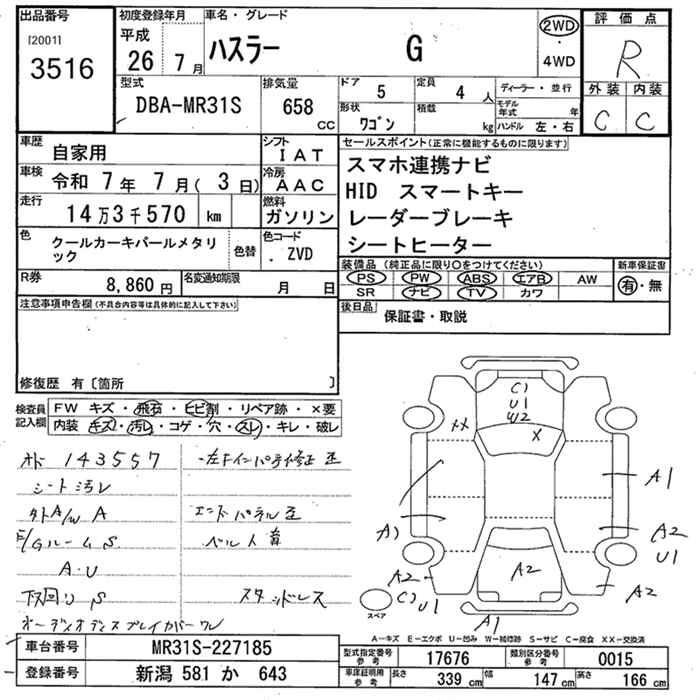 出品番号
[2001]
3516
初度登録年月
平成
26年 7月
車名・グレード
ハスラー G
2WD
・
4WD
評価点
R
外装 内装
C C
型式
DBA-MR31S
排気量
658 CC
ドア 5
定員 4人
形状 ワゴン
積載 kg
ディーラー・並行
モデル年式 年
ハンドル 左・右
車歴
自家用
シフト
IAT
車検
令和 7年 7月( 3日)
冷房
AAC
走行
14万3千570 km
燃料
ガソリン
色
クールカーキパールメタリック
色替
色コード
ZVD
R券
8,860円
名変通知期限 月 日
セールスポイント(正常に機能するものに限ります)
スマホ連携ナビ
HID スマートキー
レーダーブレーキ
シートヒーター
装備品(純正品に限り○をつけてください)
PS PW ABS エアB AW
SR ナビ TV カワ
新車保証書
有・無
後日品
保証書・取説
注意事項申告欄(不具合内容等は具体的に記入して下さい)
修復歴 有〔箇所 〕
検査員記入欄
FW キズ・飛石・ヒビ割・リペア跡・×要
内装 キズ・汚レ・コゲ・穴・スレ・キレ・破レ
143557
シート汚レ
外A/W A
E/Gルーム S
A・U
下回リ S
オーディオディスプレイカバーワレ
エンドパネル歪
スタッドレス
C) U1 W2
X
XX
A)
A1
A2
U1
A2
A2
A2
C) U1
A1
スペア
A-キズ E-エクボ U-凹み W-補修跡 S-サビ C-腐食 XX-交換済
車台番号
MR31S-227185
登録番号
新潟 581 か 643
型式指定番号 参考 17676
類別区分番号 参考 0015
車庫証明用 参考 長さ 339 cm 幅 147 cm 高さ 166 cm